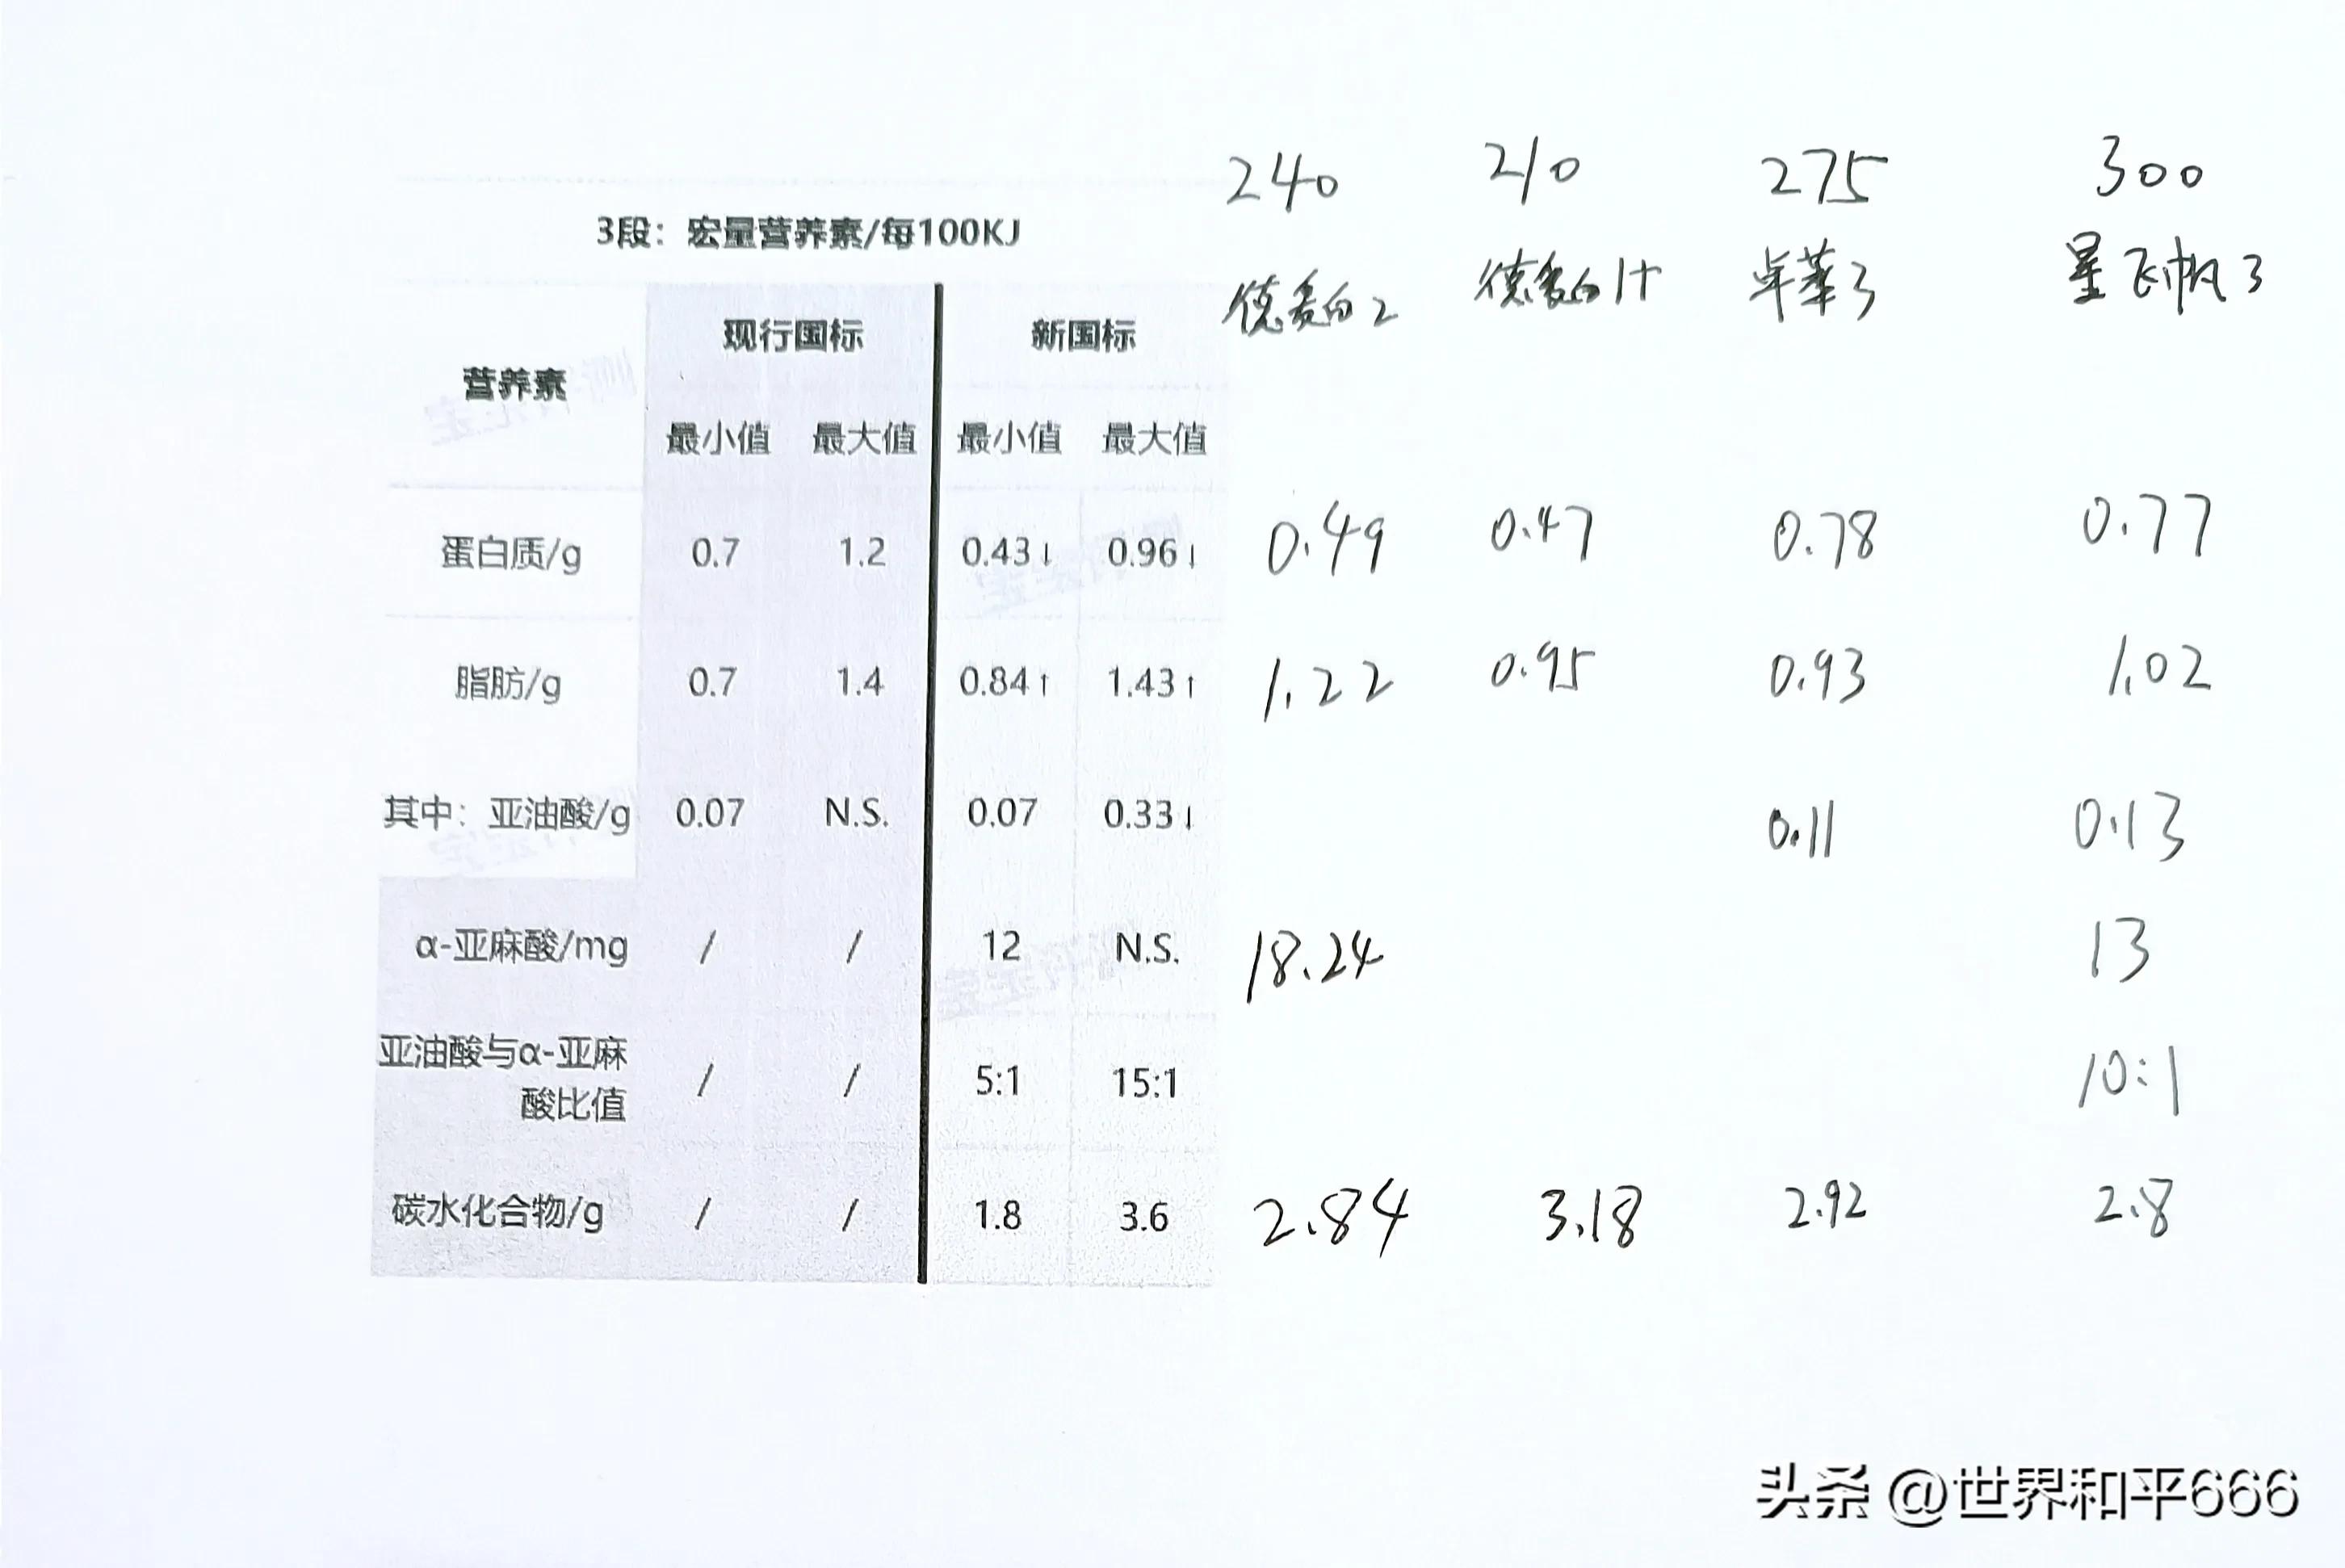 240 210 275 300
3段：宏量营养素/每100KJ
德爱白2 德爱白1+ 卓萃3 星飞帆3
营养素 现行国标 新国标
最小值 最大值 最小值 最大值
蛋白质/g 0.7 1.2 0.43↓ 0.96↓ 0.49 0.47 0.78 0.77
脂肪/g 0.7 1.4 0.84↑ 1.43↑ 1.22 0.95 0.93 1.02
其中：亚油酸/g 0.07 N.S. 0.07 0.33↓ 0.11 0.13
α-亚麻酸/mg / / 12 N.S. 18.24 13
亚油酸与α-亚麻
酸比值 / / 5:1 15:1 10:1
碳水化合物/g / / 1.8 3.6 2.84 3.18 2.92 2.8
头条 @世界和平666